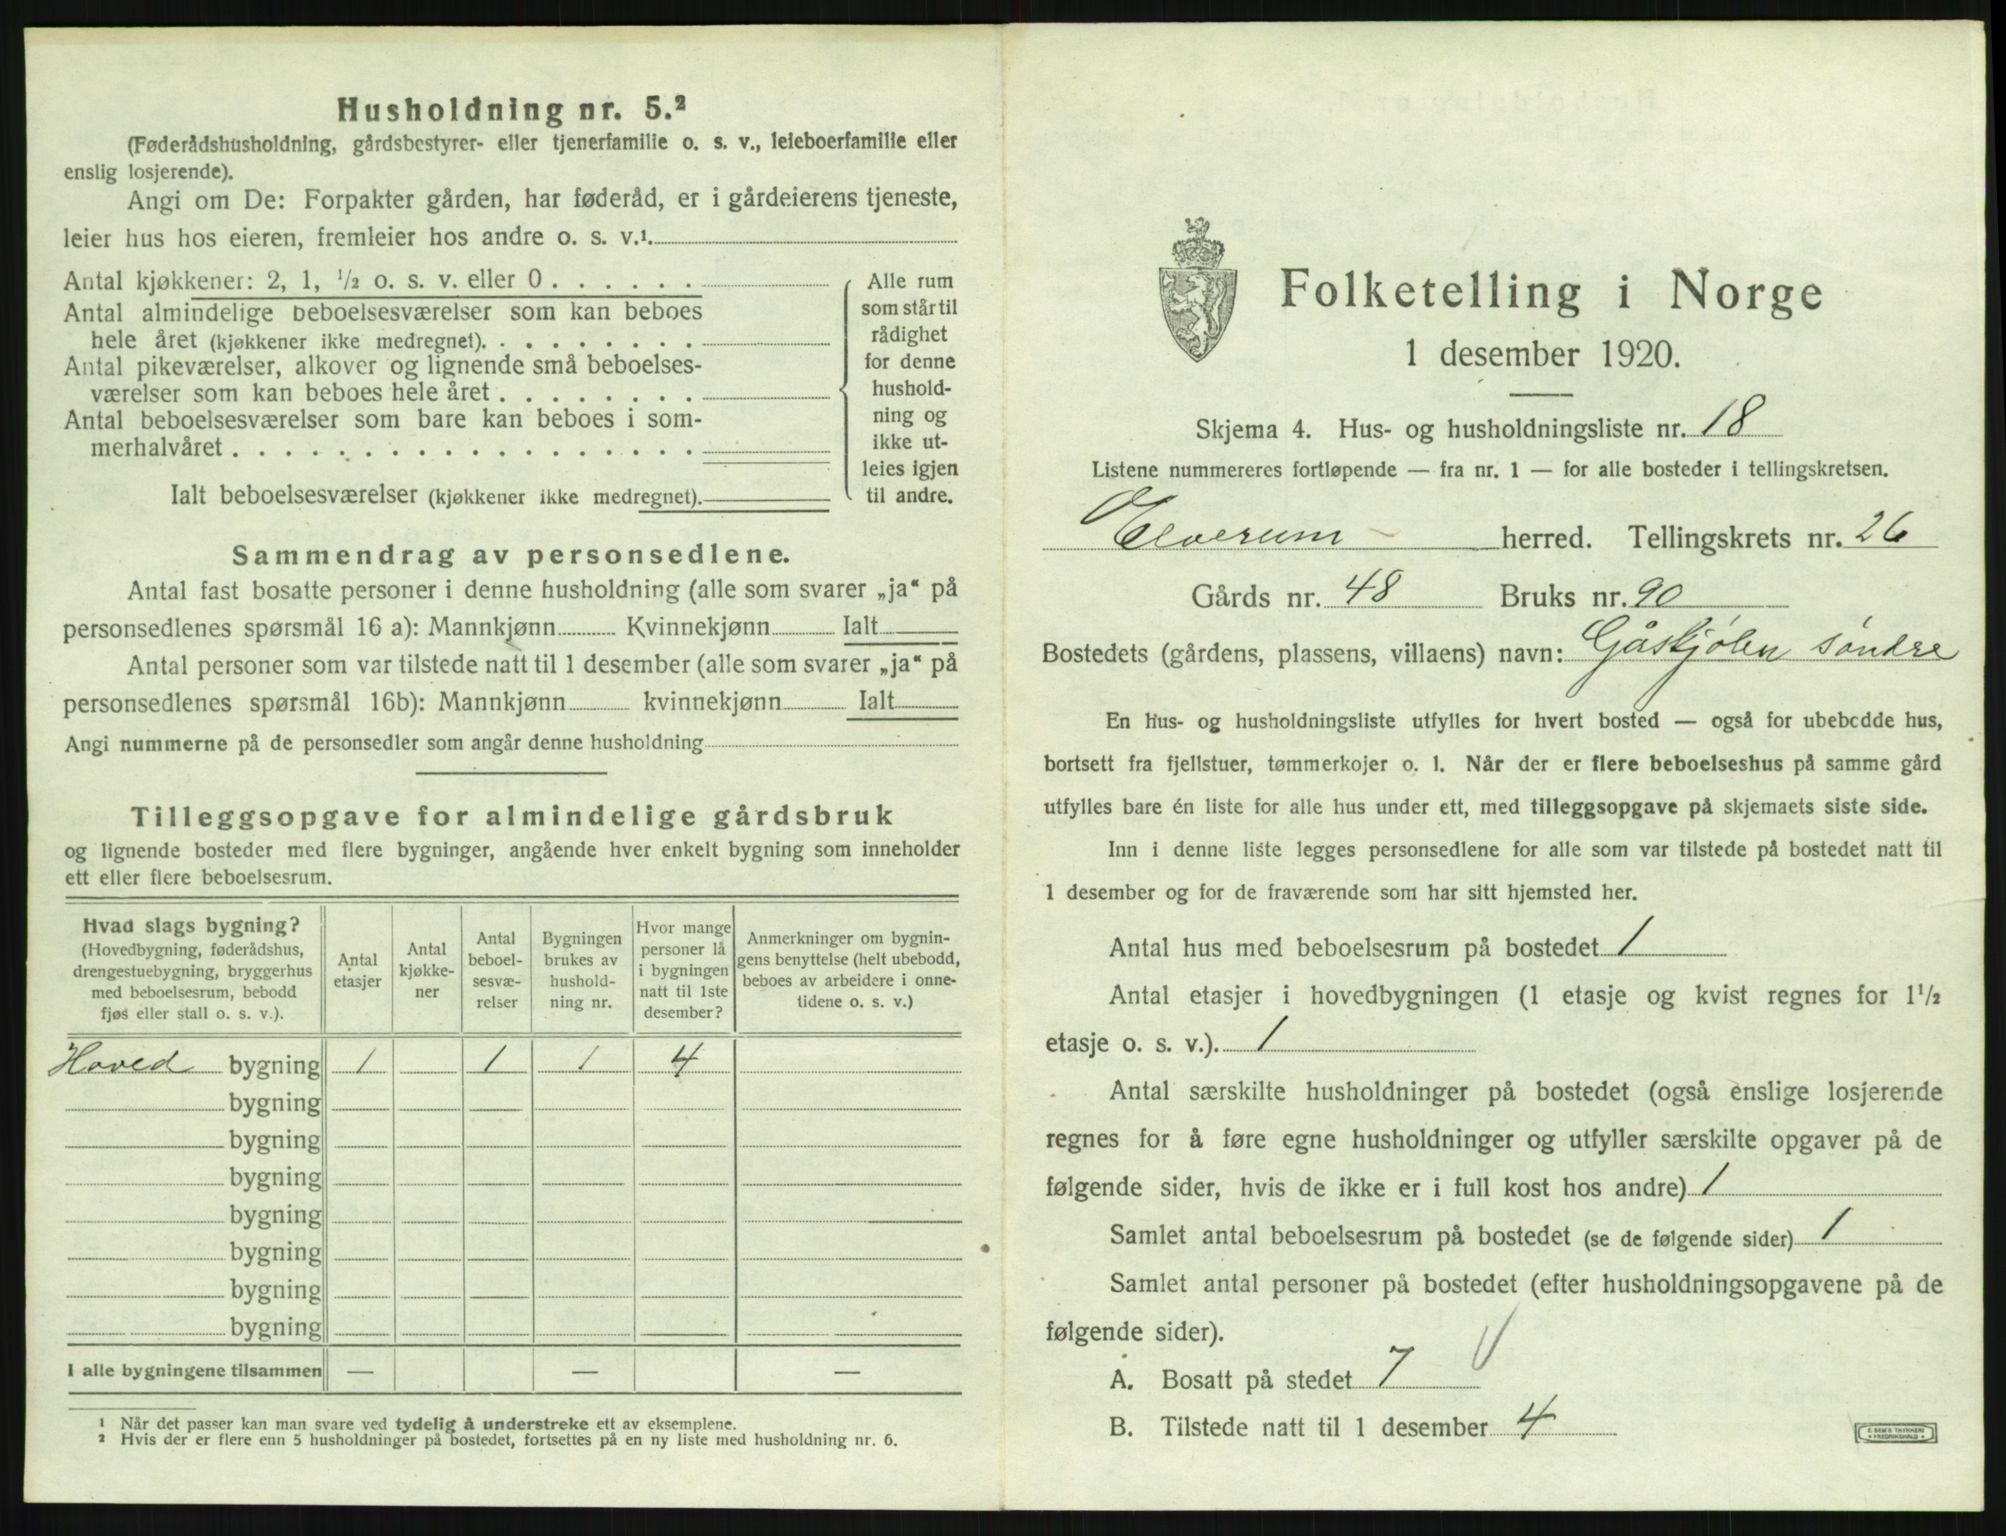 Husholdning nr. 5.²
(Føderådshusholdning, gårdsbestyrer- eller tjenerfamilie o. s. v., leieboerfamilie eller
enslig losjerende).
Angi om De: Forpakter gården, har føderåd, er i gårdeierens tjeneste,
leier hus hos eieren, fremleier hos andre o. s. v.¹
Antal kjøkkener: 2, 1, ½ o. s. v. eller 0 . . . . . .
Antal almindelige beboelsesværelser som kan beboes
hele året (kjøkkener ikke medregnet). . . . . . . . .
Antal pikeværelser, alkover og lignende små beboelses-
værelser som kan beboes hele året . . . . . . . .
Antal beboelsesværelser som bare kan beboes i som-
merhalvåret . . . . . . . . . . . . . . . . . .
Ialt beboelsesværelser (kjøkkener ikke medregnet).
Alle rum
som står til
rådighet
for denne
hushold-
ning og
ikke ut-
leies igjen
til andre.
Sammendrag av personsedlene.
Antal fast bosatte personer i denne husholdning (alle som svarer „ja“ på
personsedlenes spørsmål 16 a): Mannkjønn Kvinnekjønn Ialt
Antal personer som var tilstede natt til 1 desember (alle som svarer „ja“ på
personsedlenes spørsmål 16b): Mannkjønn kvinnekjønn Ialt
Angi nummerne på de personsedler som angår denne husholdning
Tilleggsopgave for almindelige gårdsbruk
og lignende bosteder med flere bygninger, angående hver enkelt bygning som inneholder
ett eller flere beboelsesrum.
Hvad slags bygning?
(Hovedbygning, føderådshus,
drengestuebygning, bryggerhus
med beboelsesrum, bebodd
fjøs eller stall o. s. v.).
Antal
etasjer
Antal
kjøkke-
ner
Antal
beboel-
sesvæ-
relser
Bygningen
brukes av
hushold-
ning nr.
Hvor mange
personer lå
i bygningen
natt til 1ste
desember?
Anmerkninger om bygnin-
gens benyttelse (helt ubebodd,
beboes av arbeidere i onne-
tidene o. s. v.)
Hoved bygning 1 1 1 4
bygning
bygning
bygning
bygning
bygning
bygning
bygning
I alle bygningene tilsammen — — —
¹ Når det passer kan man svare ved tydelig å understreke ett av eksemplene.
² Hvis der er flere enn 5 husholdninger på bostedet, fortsettes på en ny liste med husholdning nr. 6.
Folketelling i Norge
1 desember 1920.
Skjema 4. Hus- og husholdningsliste nr. 18
Listene nummereres fortløpende — fra nr. 1 — for alle bosteder i tellingskretsen.
Elverum herred. Tellingskrets nr. 26
Gårds nr. 48 Bruks nr. 90
Bostedets (gårdens, plassens, villaens) navn: Gåskjølen søndre
En Hus- og husholdningsliste utfylles for hvert bosted — også for ubebodde hus,
bortsett fra fjellstuer, tømmerkojer o. l. Når der er flere beboelseshus på samme gård
utfylles bare én liste for alle hus under ett, med tilleggsopgave på skjemaets siste side.
Inn i denne liste legges personsedlene for alle som var tilstede på bostedet natt til
1 desember og for de fraværende som har sitt hjemsted her.
Antal hus med beboelsesrum på bostedet 1
Antal etasjer i hovedbygningen (1 etasje og kvist regnes for 1½
etasje o. s. v.). 1
Antal særskilte husholdninger på bostedet (også enslige losjerende
regnes for å føre egne husholdninger og utfyller særskilte opgaver på de
følgende sider, hvis de ikke er i full kost hos andre) 1
Samlet antal beboelsesrum på bostedet (se de følgende sider) 1
Samlet antal personer på bostedet (efter husholdningsopgavene på de
følgende sider).
A. Bosatt på stedet 7
B. Tilstede natt til 1 desember 4